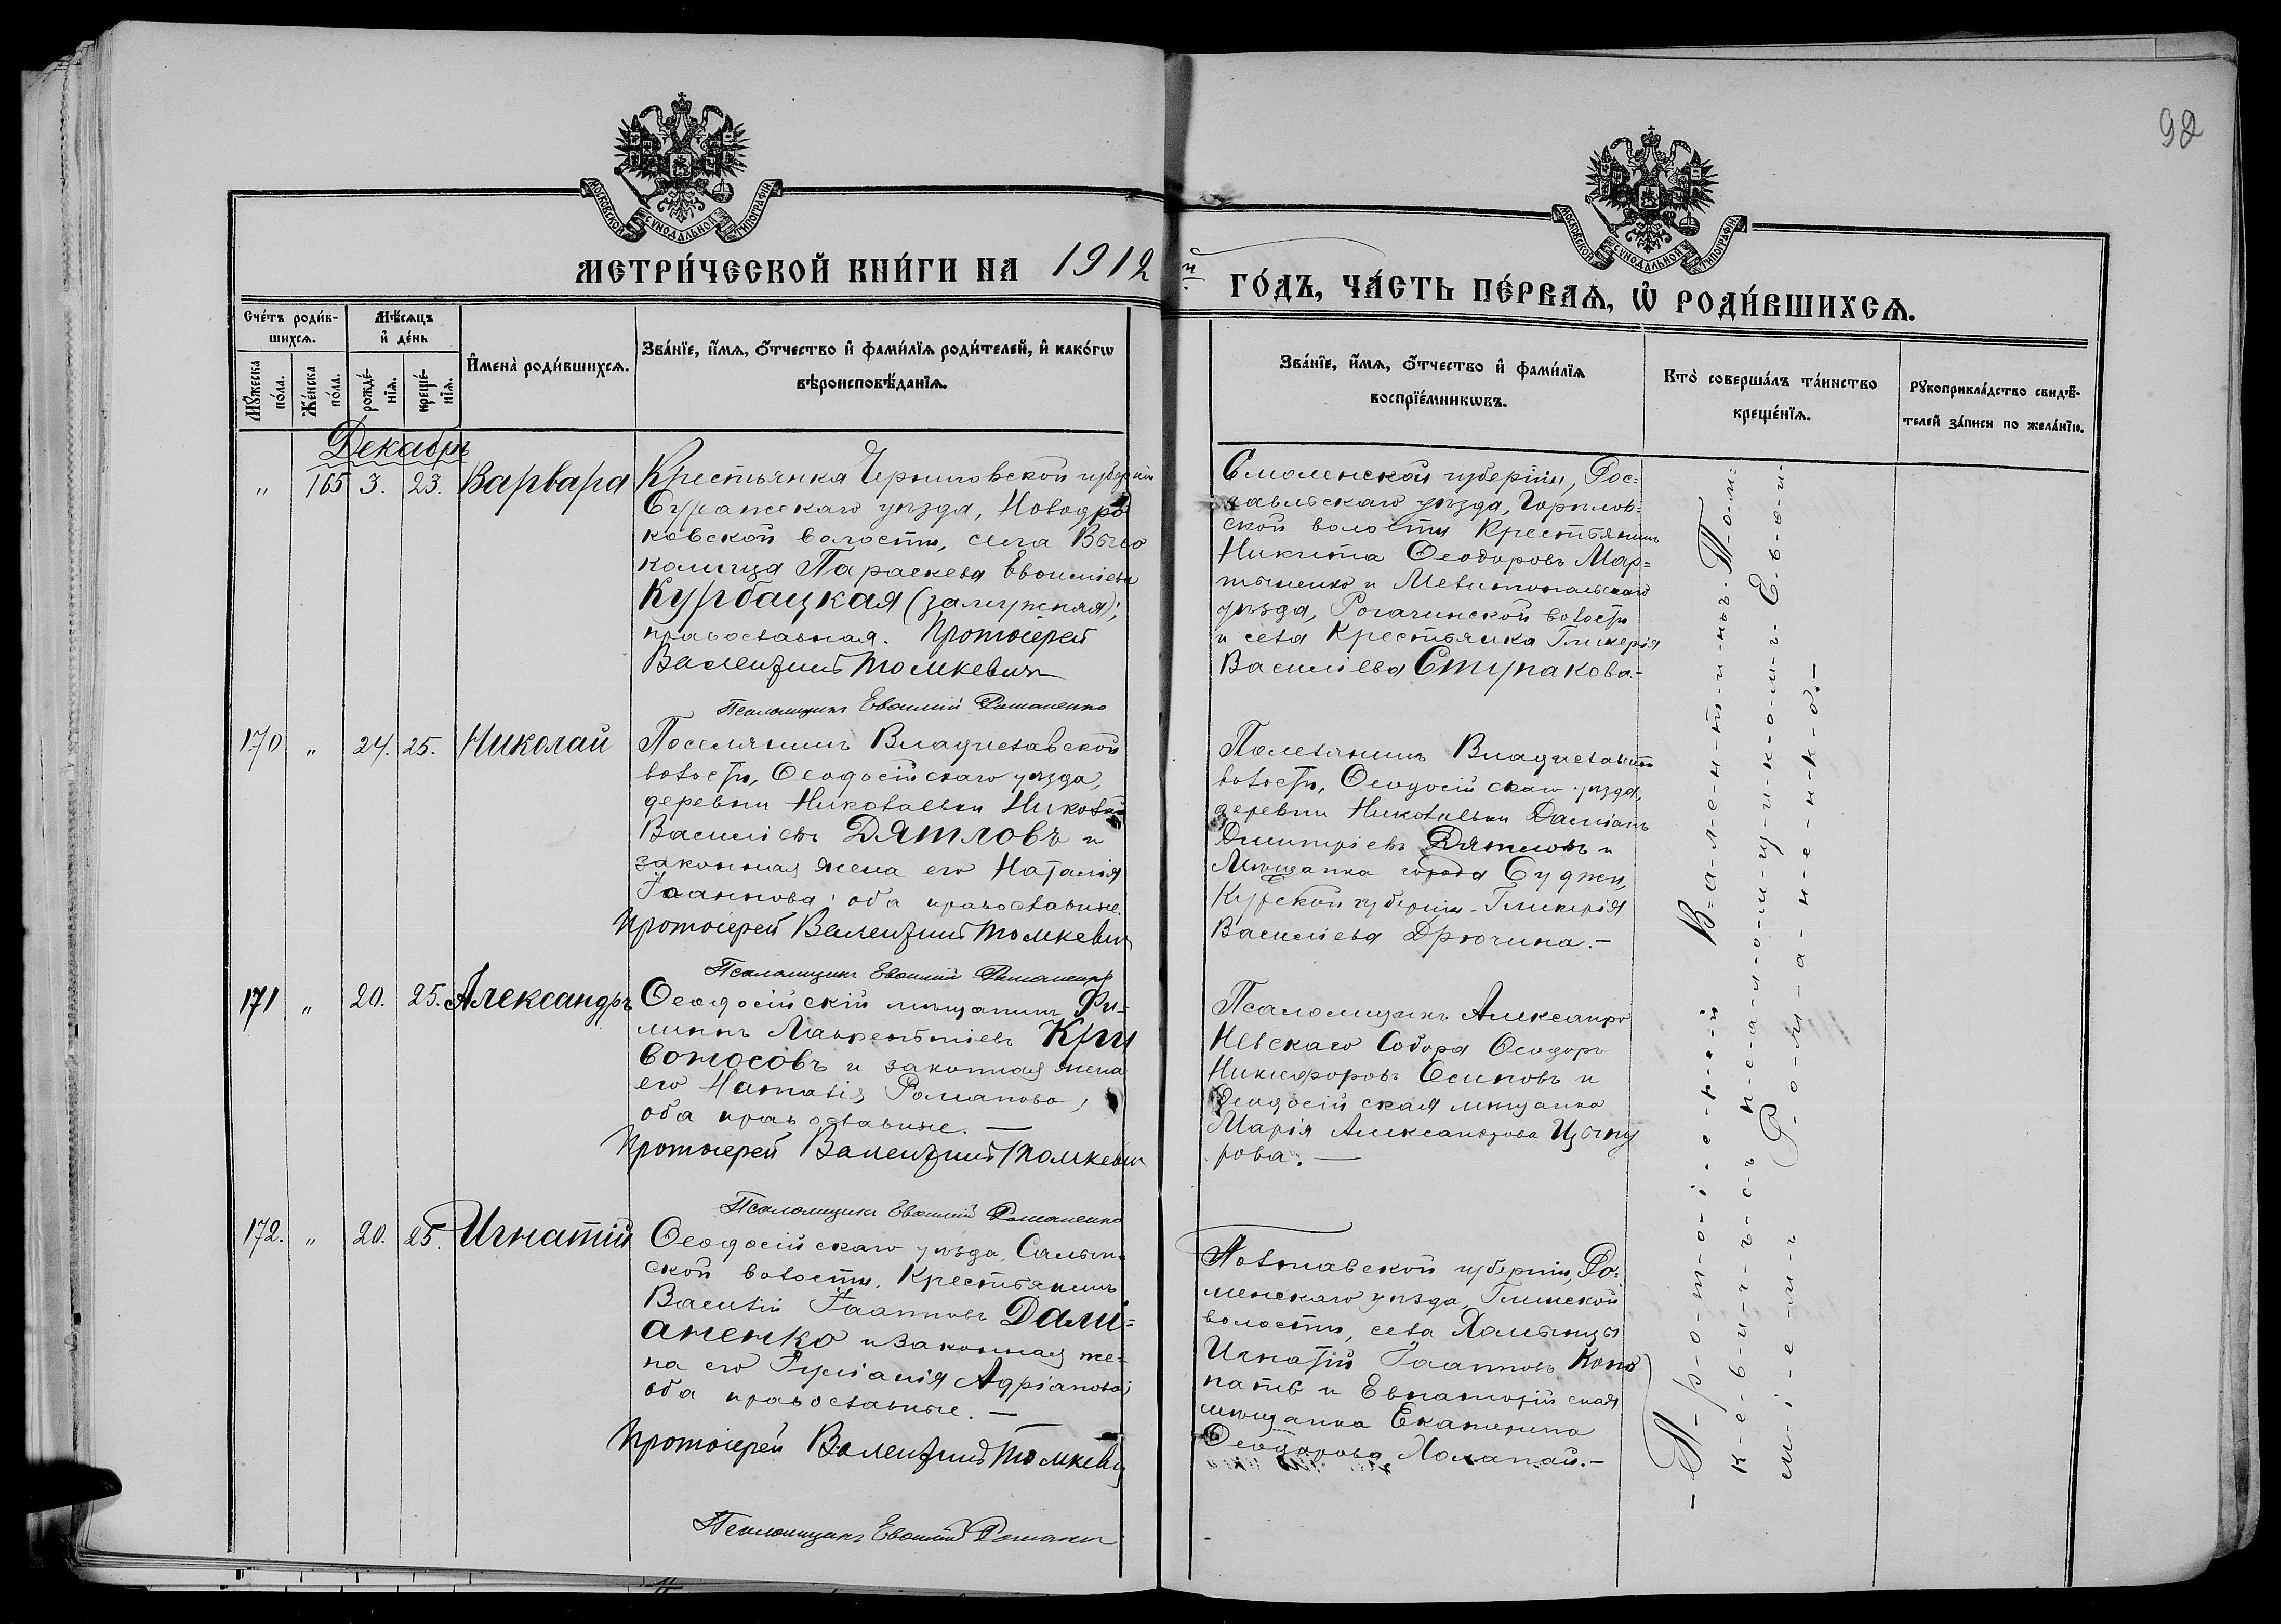 92
МОСКОВСКОЙ СѴНОДАЛЬНОЙ ТИПОГРАФІИ
МОСКОВСКОЙ СѴНОДАЛЬНОЙ ТИПОГРАФІИ
МЕТРИ́ЧЕСКОЙ КНИ́ГИ НА 1912 й ГО́ДЪ, ЧА́СТЬ ПЕ́РВАѦ, Ѡ҆ РОДИ́ВШИХСѦ.
Сче́тъ роди́в-
шихсѧ.
Мꙋ́жеска
по́ла.
Же́нска
по́ла.
Мѣ́сѧцъ
и҆ де́нь
рожде́-
нїѧ.
креще́-
нїѧ.
И҆мена̀ роди́вшихсѧ.
Зва́нїе, и҆́мѧ, ѻ҆́тчество и҆ фами́лїѧ роди́телей, и҆ како́гѡ
вѣроисповѣ́данїѧ.
Зва́нїе, и҆́мѧ, ѻ҆́тчество и҆ фами́лїѧ
воспрїе́мникѡвъ.
Кто̀ соверша́лъ та́инство
креще́нїѧ.
Рꙋкоприкла́дство свидѣ́-
телей за́писи по жела́нїю.
Декабрь
„ 165 3. 23. Варвара
Крестьянка Черниговской губерніи
Суражскаго уѣзда, Новодро
ковской волости, села
Параскева Евѳиміева
Курбацкая (замужняя);
православная. Протоіерей
Валентинъ Томкевичъ
Псаломщикъ Евѳимій Романенко
Смоленской губерніи, Рос=
лавльскаго уѣзда,
ской волости Крестьянинъ
Никита Ѳеодоровъ Мар=
тыненко и Мелитопольскаго
уѣзда, Рогачинской волости
и села Крестьянка Гликерія
Василіева Ступакова.-
170 „ 24. 25. Николай
Поселянинъ Владиславской
волости, Ѳеодосійскаго уѣзда,
деревни Николаевки Николай
Василіевъ Дятловъ и
законная жена его Наталія
Іоаннова; оба православные.
Протоіерей Валентинъ Томкевичъ
Псаломщикъ Евѳимій Романенко
Поселянинъ Владиславской
волости, Ѳеодосійскаго уѣзда,
деревни Николаевки Даміанъ
Димитріевъ Дятловъ и
Мѣщанка города Суджи,
Курской губерніи - Гликерія
Василіева Дрючина.-
171 „ 20. 25. Александръ
Ѳеодосійскій мѣщанинъ Фи-
липпъ Лаврентіевъ Кри
воносовъ и законная жена
его Наталія Романова;
оба православные. —
Протоіерей Валентинъ Томкевичъ
Псаломщикъ Евѳимій Романенко
Псаломщикъ Александро
Невскаго Собора Ѳеодоръ
Никифоровъ Осиповъ и
Ѳеодосійская мѣщанка
Марія Александрова Цыпу
рова. —
172. „ 20. 25. Игнатій
Ѳеодосійскаго уѣзда, Салын-
ской волости, Крестьянинъ
Василій Іоанновъ Дамі=
аненко и законная же-
на его Іуліанія Адріанова;
оба православные. —
Протоіерей Валентинъ Томкевичъ
Псаломщикъ Евѳимій Романенко
Полтавской губерніи, Ро=
менскаго уѣзда, Глинской
волости, села
Игнатій Іоанновъ Коно
патъ и Евпаторійская
мѣщанка Екатерина
Ѳеодорова
- П-р-о-т-о-і-е-р-е-й В-а-л-е-н-т-и-н-ъ Т-о-м-
к-е-в-и-ч-ъ с-ъ п-с-а-л-о-м-щ-и-к-о-м-ъ Е-в-ѳ-и-
м-і-е-м-ъ Р-о-м-а-н-е-н-к-о.-